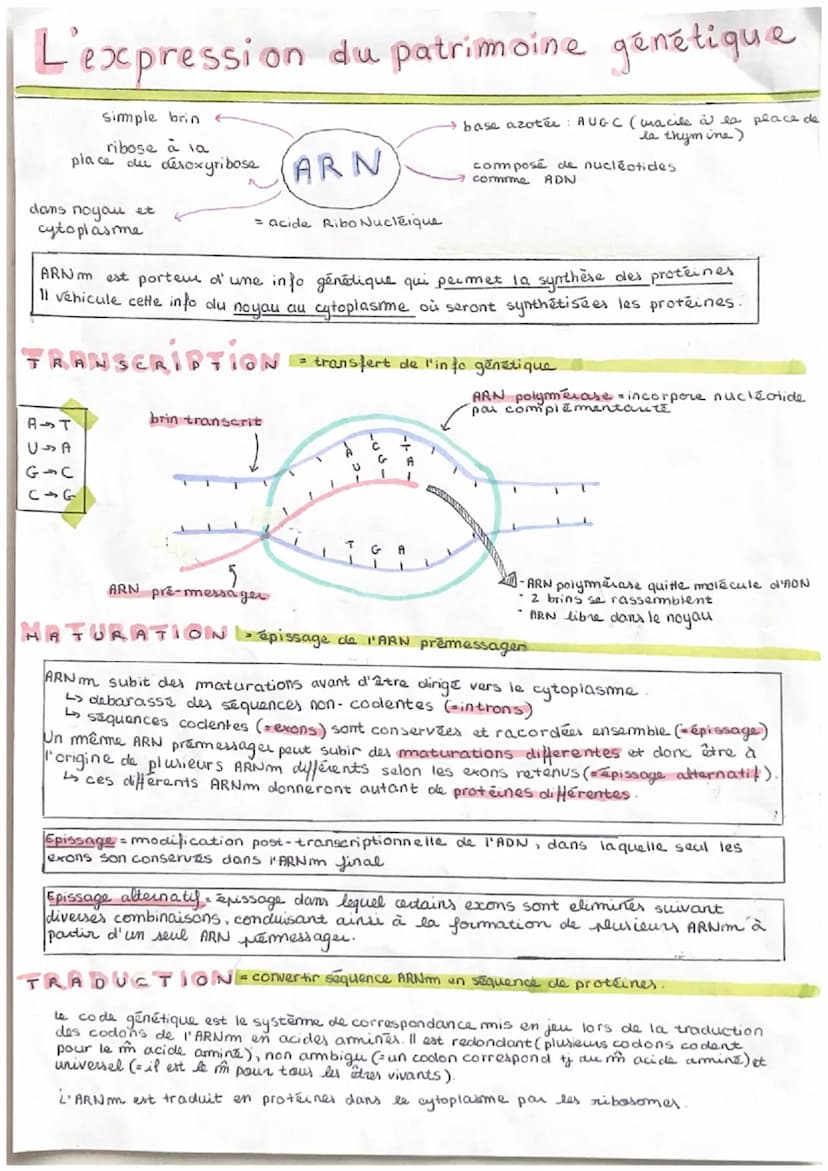 L'expression du patrimoine génétique
simple brin
ribose à la
place du désoxyribose
dans noyau et
cytoplasme
ARN
= acide RiboNucléique
base azotée : AUGC (uracile à la place de
la thymine)
composé de nucléotides
comme ADN
ARNm est porteur d'une info génétique qui permet la synthèse des protéines
Il véhicule cette info du noyau au cytoplasme où seront synthétisées les protéines.
TRANSCRIPTION = transfert de l'info génétique
A → T
U → A
G → C
C → G
brin transcrit
ARN polymérase = incorpore nucléotide
par complémentarité
A C T
U G A
T G A
ARN pré-messager
- ARN polymérase quitte molécule d'ADN
- 2 brins se rassemblent
- ARN libre dans le noyau
MATURATION = épissage de l'ARN prémessager
ARNm subit des maturations avant d'être dirigé vers le cytoplasme.
↳ debarassé des séquences non-codentes (=introns)
↳ séquences codentes (=exons) sont conservées et racordées ensemble (=épissage)
Un même ARN prémessager peut subir des maturations differentes et donc être à
l'origine de plusieurs ARNm différents selon les exons retenus (=épissage alternatif).
↳ ces différents ARNm donneront autant de protéines différentes.
Epissage = modification post-transcriptionnelle de l'ADN, dans laquelle seul les
exons son conservés dans l'ARNm final
Epissage alternatif = épissage dans lequel certains exons sont eliminés suivant
diverses combinaisons, conduisant ainsi à la formation de plusieurs ARNm à
partir d'un seul ARN prémessager.
TRADUCTION = convertir séquence ARNm en séquence de protéines.
Le code génétique est le système de correspondance mis en jeu lors de la traduction
des codons de l'ARNm en acides aminés. Il est redondant (plusieurs codons codent
pour le m̂ acide aminé), non ambigu (= un codon correspond tj au m̂ acide aminé) et
universel (= il est le m̂ pour tous les êtres vivants).
L'ARNm est traduit en protéines dans le cytoplasme par les ribosomes.